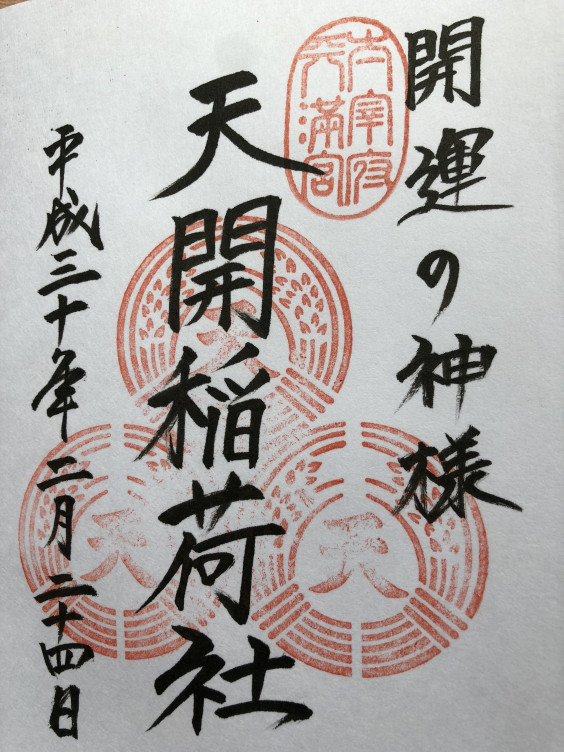 開運の神様
太宰府
天満宮
天開稲荷社
平成三十年二月二十四日
天
天
天